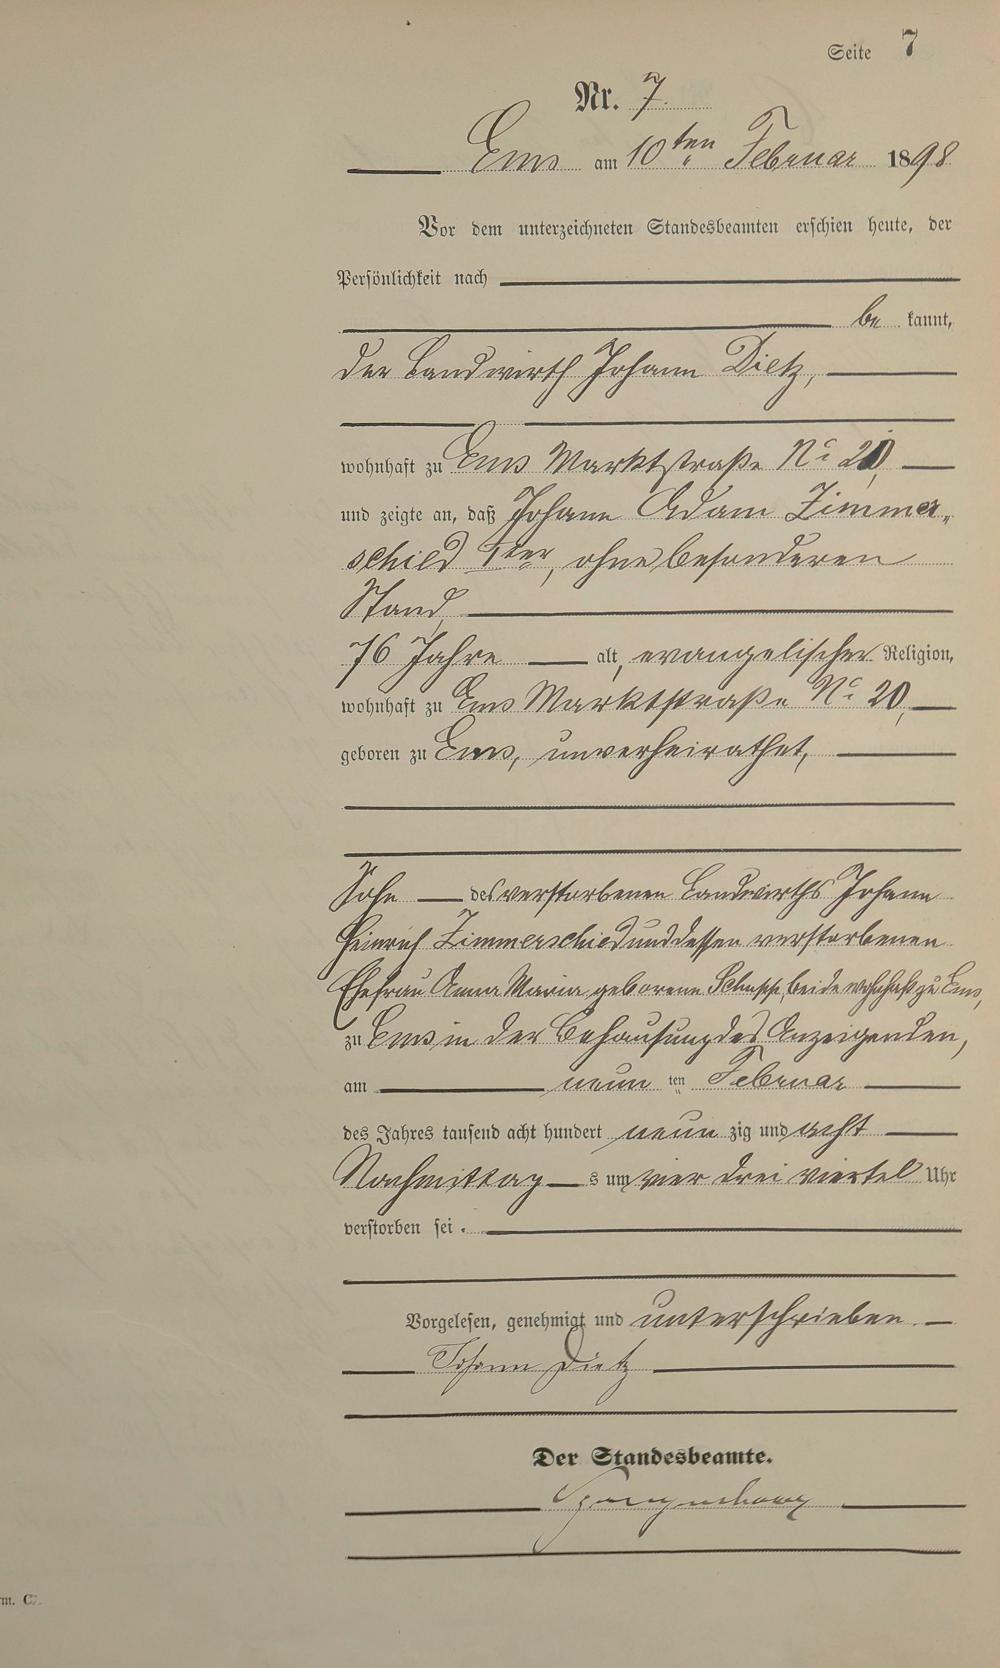 Seite 7
Nr. 7.
Ems am 10ten Februar 1898
Vor dem unterzeichneten Standesbeamten erschien heute, der
Persönlichkeit nach
be kannt,
der Landwirth Johann Dietz,
wohnhaft zu Ems Marktstraße No 20,
und zeigte an, daß Johann Adam Zimmer„
schied 1ter, ohne besonderen
Stand,
76 Jahre alt, evangelischer Religion,
wohnhaft zu Ems Marktstraße No 20,
geboren zu Ems, unverheirathet,
Sohn des verstorbenen Landwirths Johann
Heinrich Zimmerschied und dessen verstorbenen
Ehefrau Anna Maria geborene Schupp, beide wohnhaft zu Ems,
zu Ems in der Behausung des Anzeigenden,
am neun ten Februar
des Jahres tausend acht hundert neun zig und acht
Nachmittag s um vier drei viertel Uhr
verstorben sei.
Vorgelesen, genehmigt und unterschrieben
Johann Dietz
Der Standesbeamte.
rm. C.